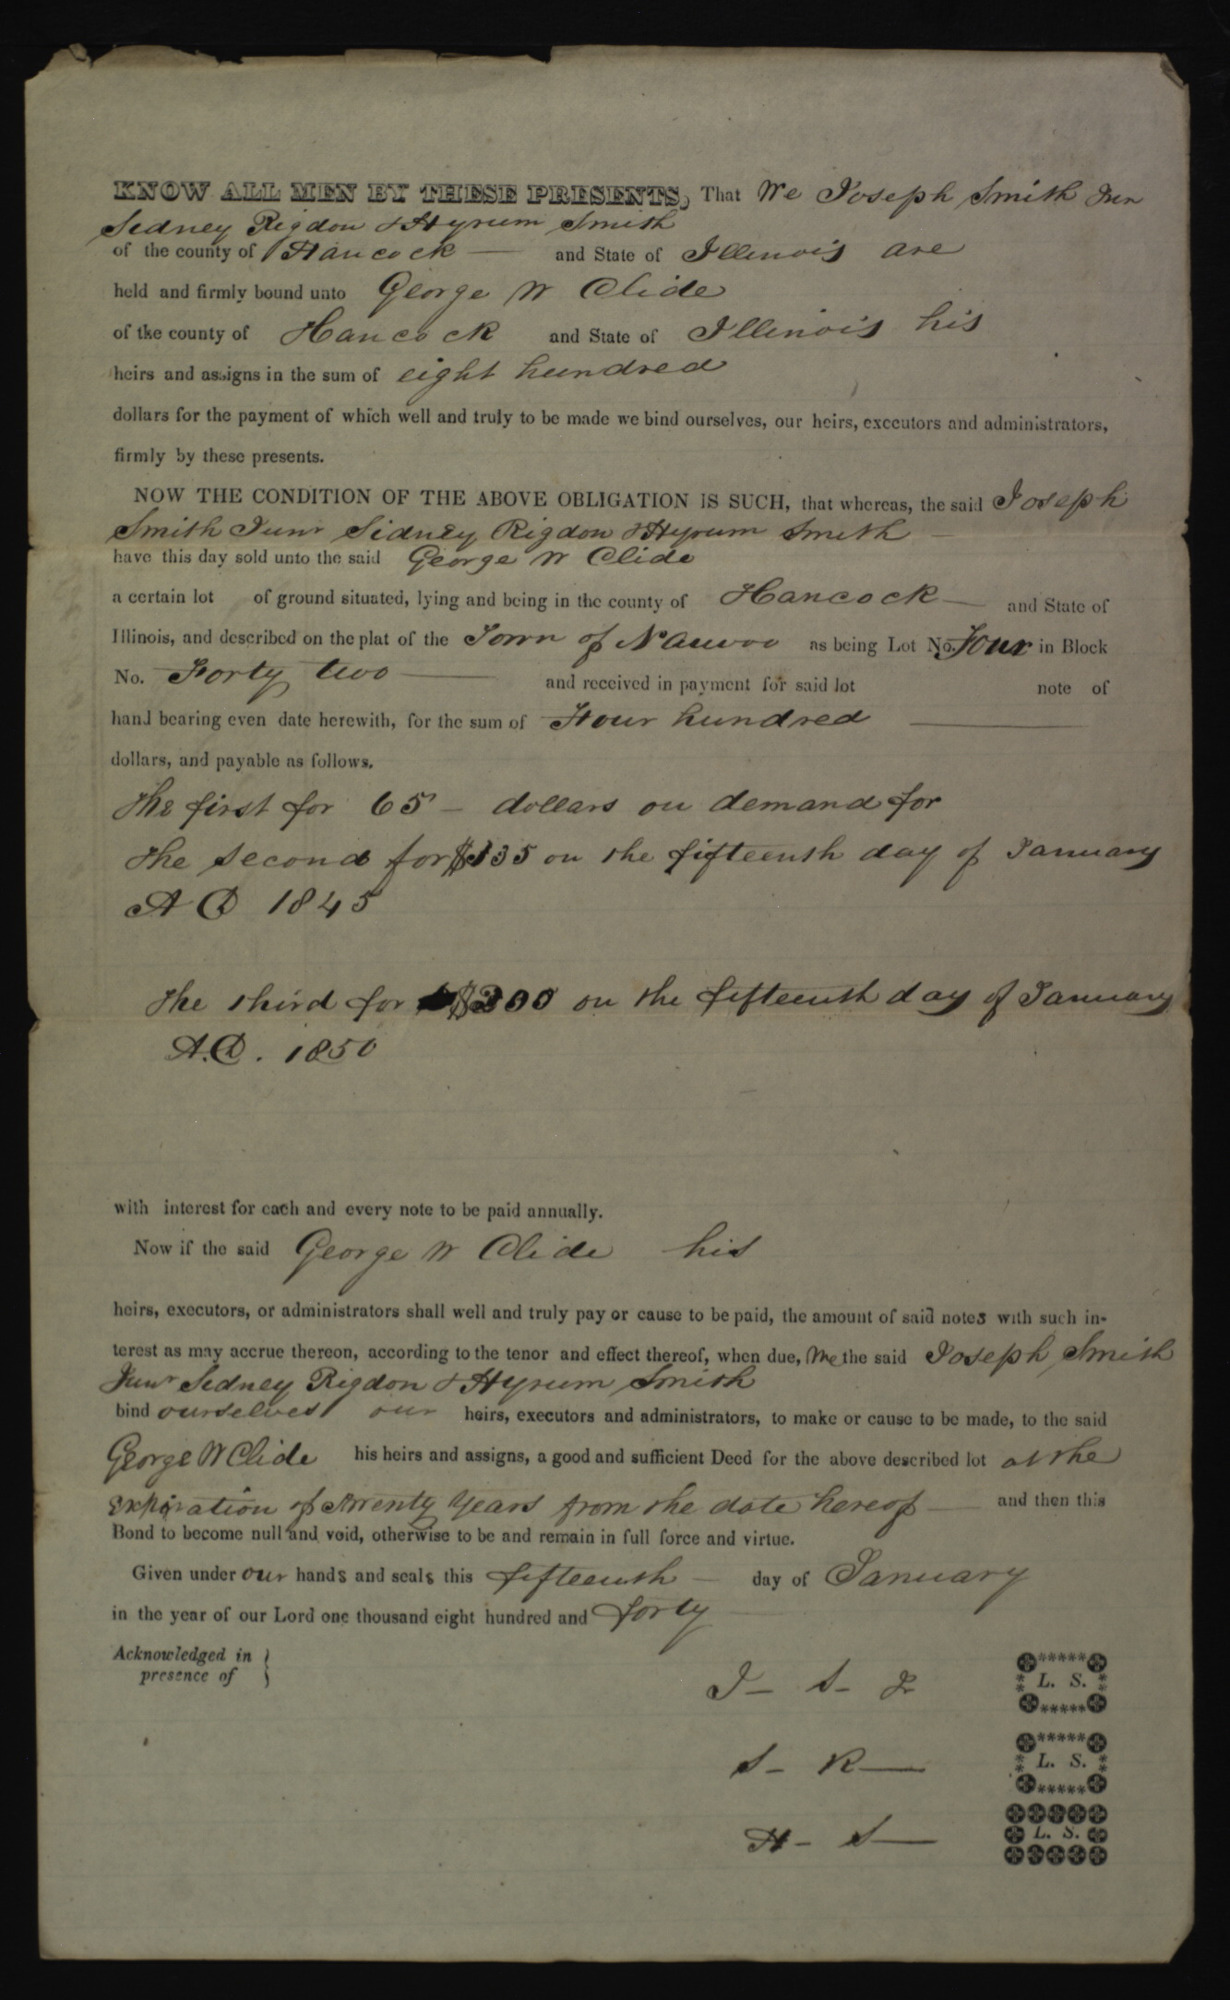 KNOW ALL MEN BY THESE PRESENTS, That We Joseph Smith Jun
Sidney Rigdon & Hyrum Smith
of the county of Hancock — and State of Illinois are
held and firmly bound unto George W Clide
of the county of Hancock and State of Illinois his
heirs and assigns in the sum of eight hundred
dollars for the payment of which well and truly to be made we bind ourselves, our heirs, executors and administrators,
firmly by these presents.
NOW THE CONDITION OF THE ABOVE OBLIGATION IS SUCH, that whereas, the said Joseph
Smith Junr Sidney Rigdon & Hyrum Smith —
have this day sold unto the said George W Clide
a certain lot of ground situated, lying and being in the county of Hancock — and State of
Illinois, and described on the plat of the Town of Nauvoo as being Lot No. Four in Block
No. Forty two — and received in payment for said lot note of
hand bearing even date herewith, for the sum of Four hundred —
dollars, and payable as follows.
the first for 65 — dollars on demand for
the second for $135 on the fifteenth day of January
A D 1845
the third for $200 on the fifteenth day of January
A.D. 1850
with interest for each and every note to be paid annually.
Now if the said George W Clide his
heirs, executors, or administrators shall well and truly pay or cause to be paid, the amount of said notes with such in-
terest as may accrue thereon, according to the tenor and effect thereof, when due, We the said Joseph Smith
Junr Sidney Rigdon & Hyrum Smith
bind ourselves our heirs, executors and administrators, to make or cause to be made, to the said
George W Clide his heirs and assigns, a good and sufficient Deed for the above described lot at the
expiration of twenty years from the date hereof — and then this
Bond to become null and void, otherwise to be and remain in full force and virtue.
Given under our hands and seals this fifteenth — day of January
in the year of our Lord one thousand eight hundred and forty
Acknowledged in }
presence of }
J — S — Jr
L. S.
S — R —
L. S.
H — S —
L. S.